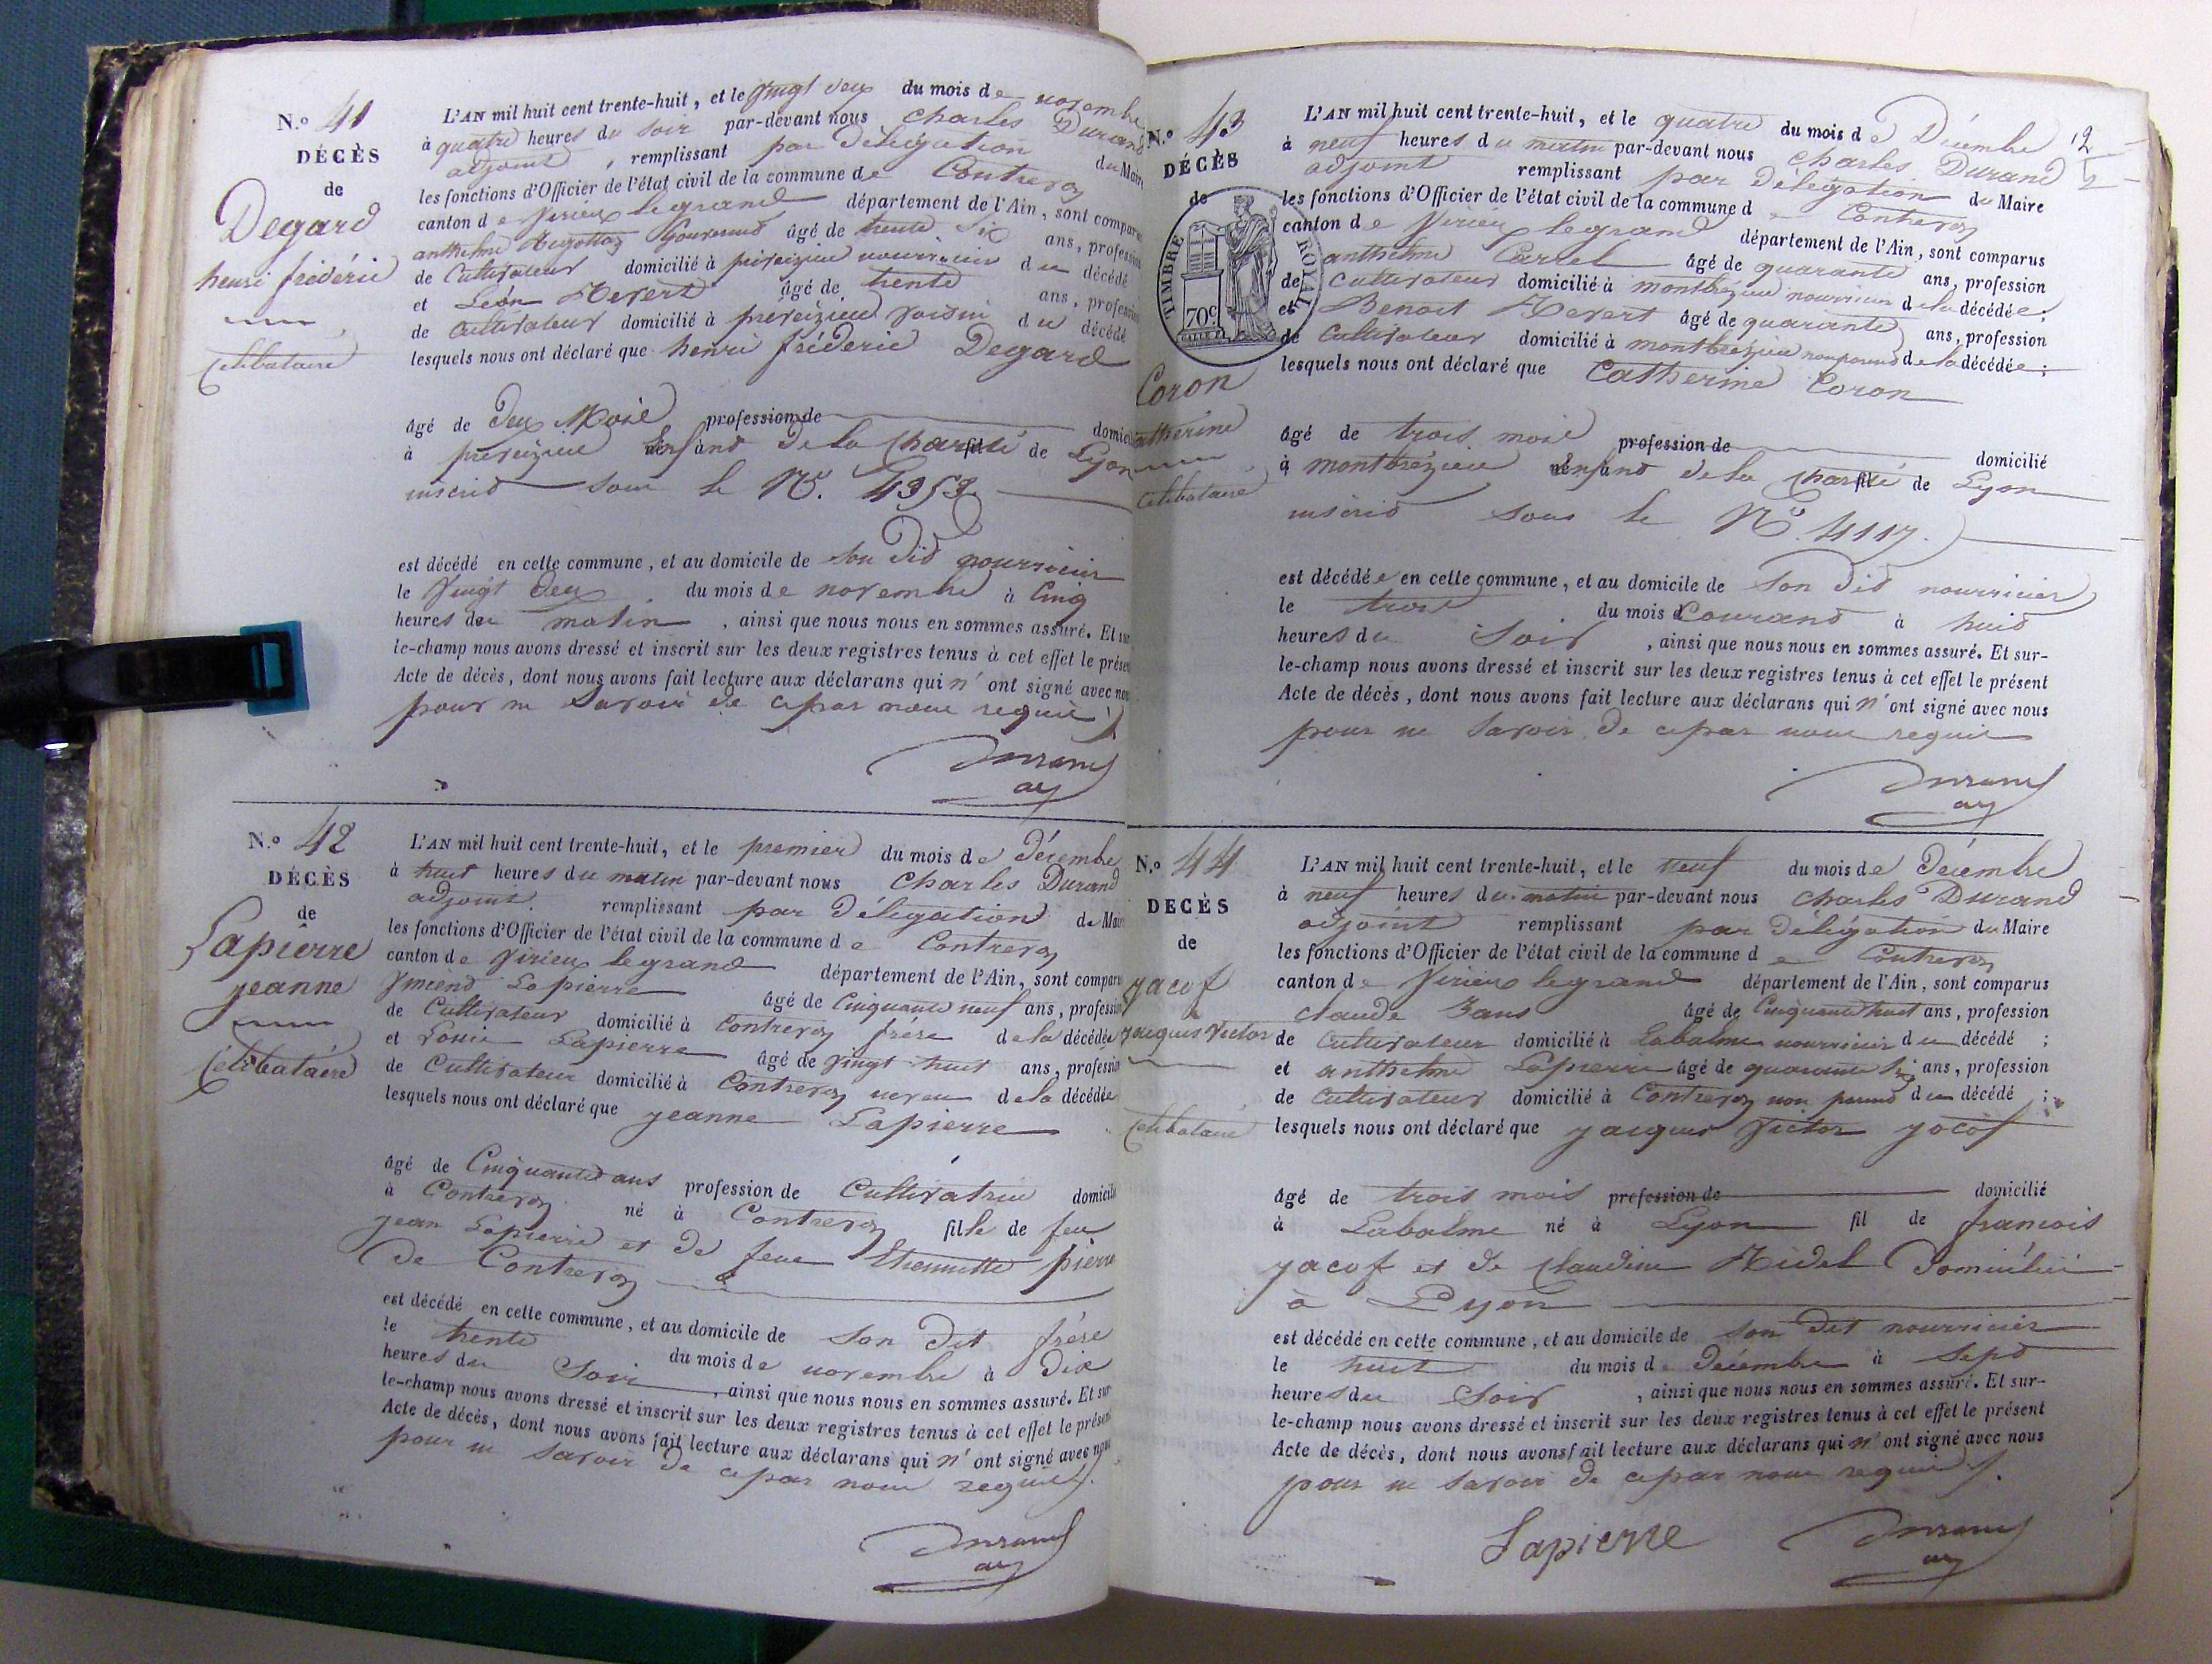 N.º 41
DÉCÈS
de
Degard
henri fréderic
Célibataire
L'AN mil huit cent trente-huit, et le vingt deux du mois de novembre
à quatre heures du soir par-devant nous Charles Durand
adjoint, remplissant par Délégation du Maire
les fonctions d'Officier de l'état civil de la commune de Contrevoz
canton de Virieu legrand département de l'Ain, sont comparus
anthelme âgé de trente Six ans, profession
de Cultivateur domicilié à preveizieu nourricier du décédé
et Léon Revert âgé de trente ans, profession
de Cultivateur domicilié à preveizieu voisin du décédé
lesquels nous ont déclaré que henri fréderic Degard
âgé de deux Mois profession de domicilié
à preveizieu Enfant de la Charité de Lyon
inscrit sous le Nº. 4353
est décédé en cette commune, et au domicile de son dit nourricier
le vingt deux du mois de novembre à Cinq
heures du matin, ainsi que nous nous en sommes assuré. Et sur
le-champ nous avons dressé et inscrit sur les deux registres tenus à cet effet le présent
Acte de décès, dont nous avons fait lecture aux déclarans qui n'ont signé avec nous
pour ne Savoir de ce par nous requis
Durand
adj
N.º 42
DÉCÈS
de
Lapierre
jeanne
Célibataire
L'AN mil huit cent trente-huit, et le premier du mois de Décembre
à huit heures du matin par-devant nous Charles Durand
adjoint. remplissant par Délégation du Maire
les fonctions d'Officier de l'état civil de la commune de Contrevoz
canton de Virieu legrand département de l'Ain, sont comparus
Lapierre âgé de Cinquante neuf ans, profession
de Cultivateur domicilié à Contrevoz frère de la décédée
et Louis Lapierre âgé de vingt huit ans, profession
de Cultivateur domicilié à Contrevoz neveu de la décédée
lesquels nous ont déclaré que jeanne Lapierre
âgé de Cinquante ans profession de Cultivatrice domicilié
à Contrevoz né à Contrevoz fille de feu
jean Lapierre et de feue Etiennette pierre
de Contrevoz
est décédé en cette commune, et au domicile de Son Dit frère
le trente du mois de novembre à Dix
heures du Soir, ainsi que nous nous en sommes assuré. Et sur
le-champ nous avons dressé et inscrit sur les deux registres tenus à cet effet le présent
Acte de décès, dont nous avons fait lecture aux déclarans qui n'ont signé avec nous
pour ne savoir de ce par nous requis
Durand
adj
12
N.º 43
DÉCÈS
de
TIMBRE ROYAL
70c
Coron
Catherine
Célibataire
L'AN mil huit cent trente-huit, et le quatre du mois de Décembre
à neuf heures du matin par-devant nous Charles Durand
adjoint remplissant par Délégation du Maire
les fonctions d'Officier de l'état civil de la commune de Contrevoz
canton de Virieu legrand département de l'Ain, sont comparus
anthelme âgé de quarante ans, profession
de Cultivateur domicilié à montbrézieu nourricier de la décédée;
et Benoit Revert âgé de quarante ans, profession
de Cultivateur domicilié à montbrézieu non parend de la décédée;
lesquels nous ont déclaré que Catherine Coron
âgé de trois mois profession de domicilié
à montbrézieu Enfand de la Charité de Lyon
inscrid sous le Nº. 4117.
est décédée en cette commune, et au domicile de Son Dit nourricier
le trois du mois Courand à huid
heures du Soir, ainsi que nous nous en sommes assuré. Et sur-
le-champ nous avons dressé et inscrit sur les deux registres tenus à cet effet le présent
Acte de décès, dont nous avons fait lecture aux déclarans qui n'ont signé avec nous
pour ne Savoir de ce par nous requis
Durand
adj
N.º 44
DECÈS
de
yacof
Jacques Victor
Célibataire
L'AN mil huit cent trente-huit, et le neuf du mois de Décembre
à neuf heures du matin par-devant nous Charles Durand
adjoint remplissant par Délégation du Maire
les fonctions d'Officier de l'état civil de la commune de Contrevoz
canton de Virieu legrand département de l'Ain, sont comparus
claude Jans âgé de Cinquante huit ans, profession
de Cultivateur domicilié à Labalme nourricier du décédé;
et anthelme Lapierre âgé de quarante Six ans, profession
de Cultivateur domicilié à Contrevoz non parend du décédé;
lesquels nous ont déclaré que yacques Victor yocof
âgé de trois mois profession de domicilié
à Labalme né à Lyon fil de francois
yacof et de Claudine Ridel Domiciliés
à Lyon
est décédé en cette commune, et au domicile de son Dit nourricier
le huit du mois de Décembre à Sept
heures du Soir, ainsi que nous nous en sommes assuré. Et sur-
le-champ nous avons dressé et inscrit sur les deux registres tenus à cet effet le présent
Acte de décès, dont nous avons fait lecture aux déclarans qui n'ont signé avec nous
pour ne savoir de ce par nous requis
Lapierre Durand
adj